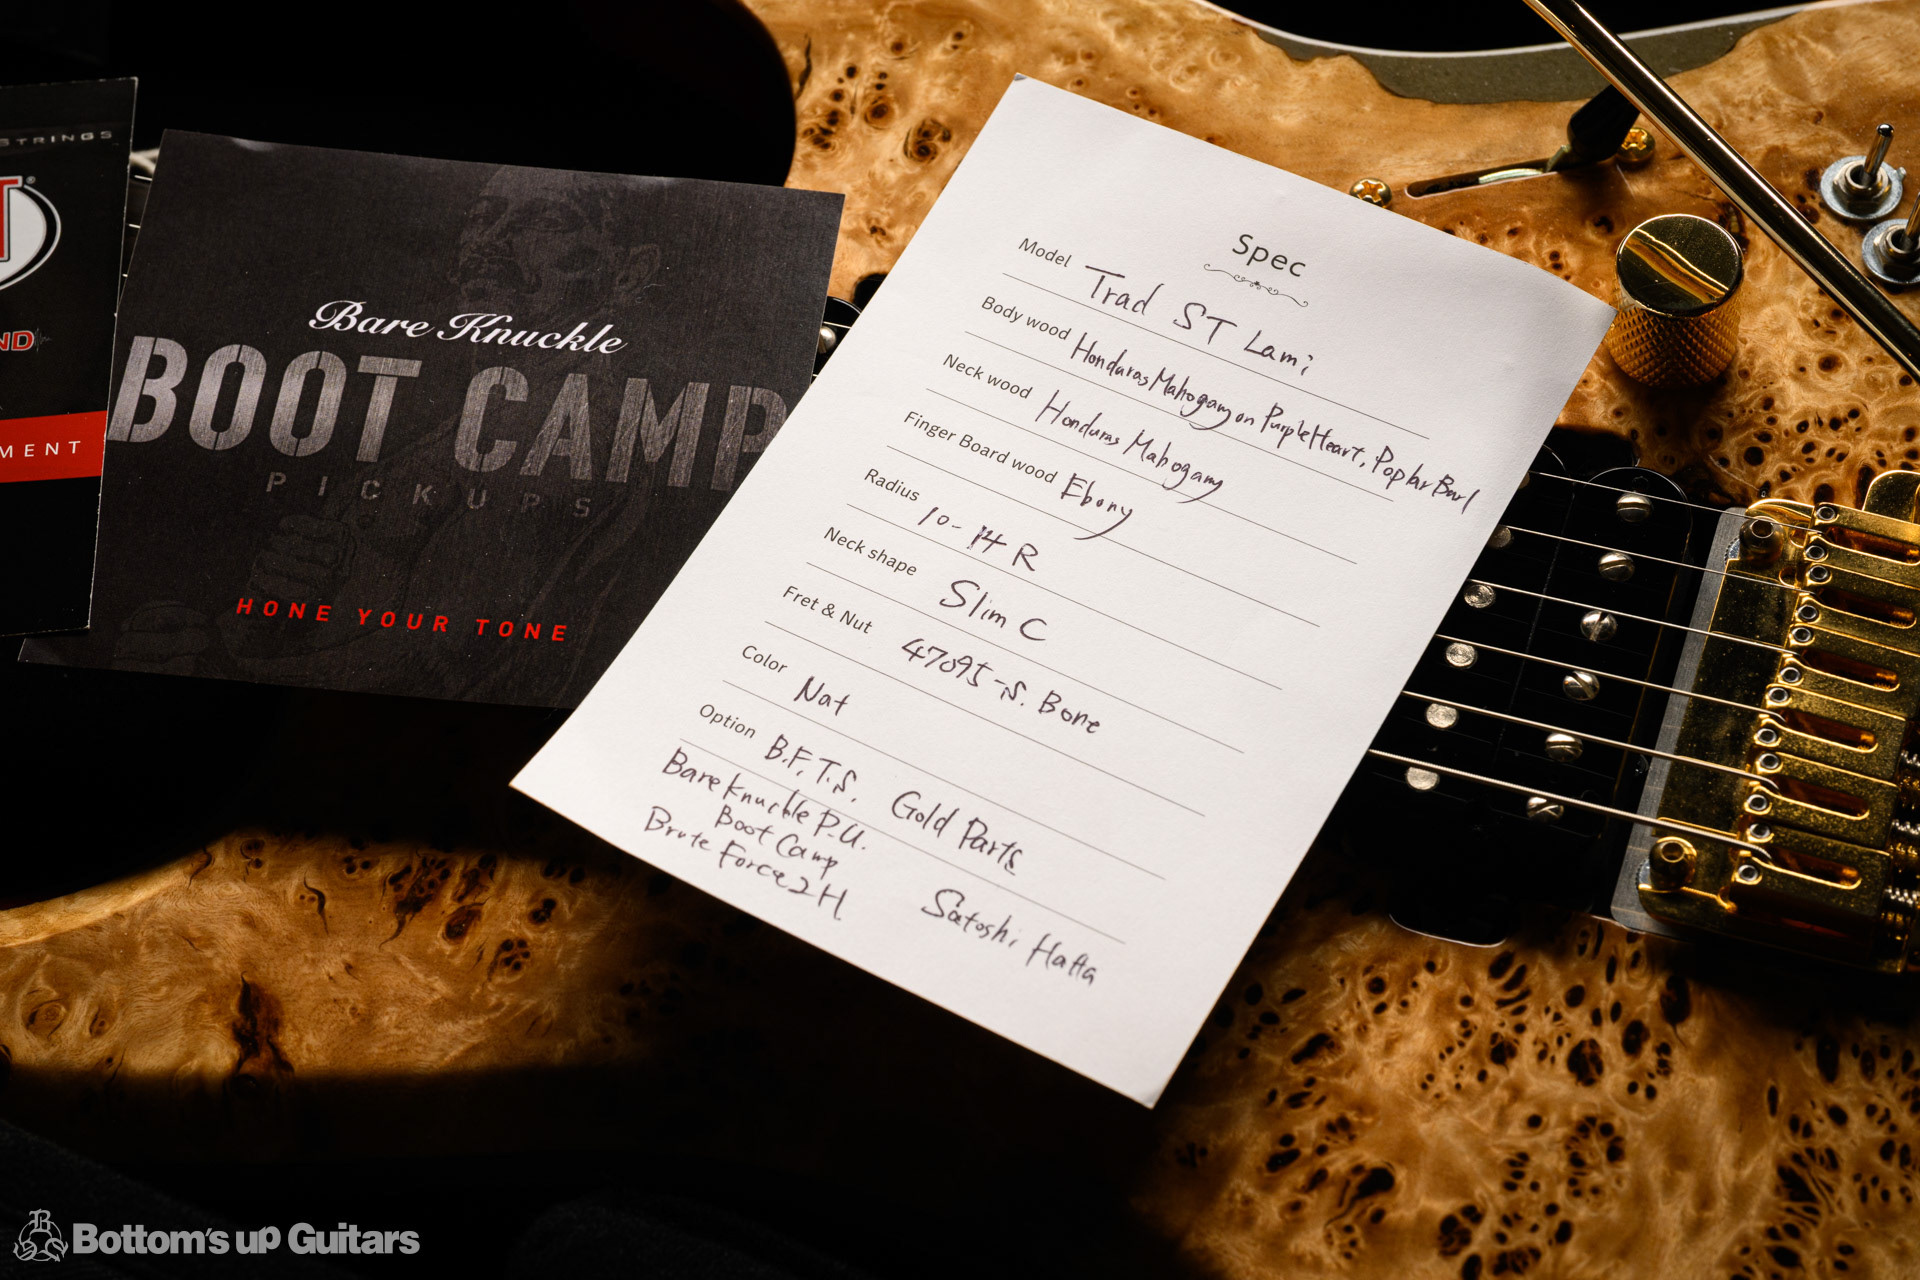 STRINGS
T®
ND
MENT
Bare Knuckle
BOOT CAMP
PICKUPS
HONE YOUR TONE
Spec
Model Trad ST Lami
Body wood Honduras Mahogany on PurpleHeart, Poplar Burl
Neck wood Honduras Mahogany
Finger Board wood Ebony
Radius 10-14 R
Neck shape Slim C
Fret & Nut 47095-S. Bone
Color Nat
Option B.F.T.S. Gold Parts
Bare Knuckle P.U.
Boot Camp
Brute Force 2H
Satoshi Hatta
Bottom's up Guitars